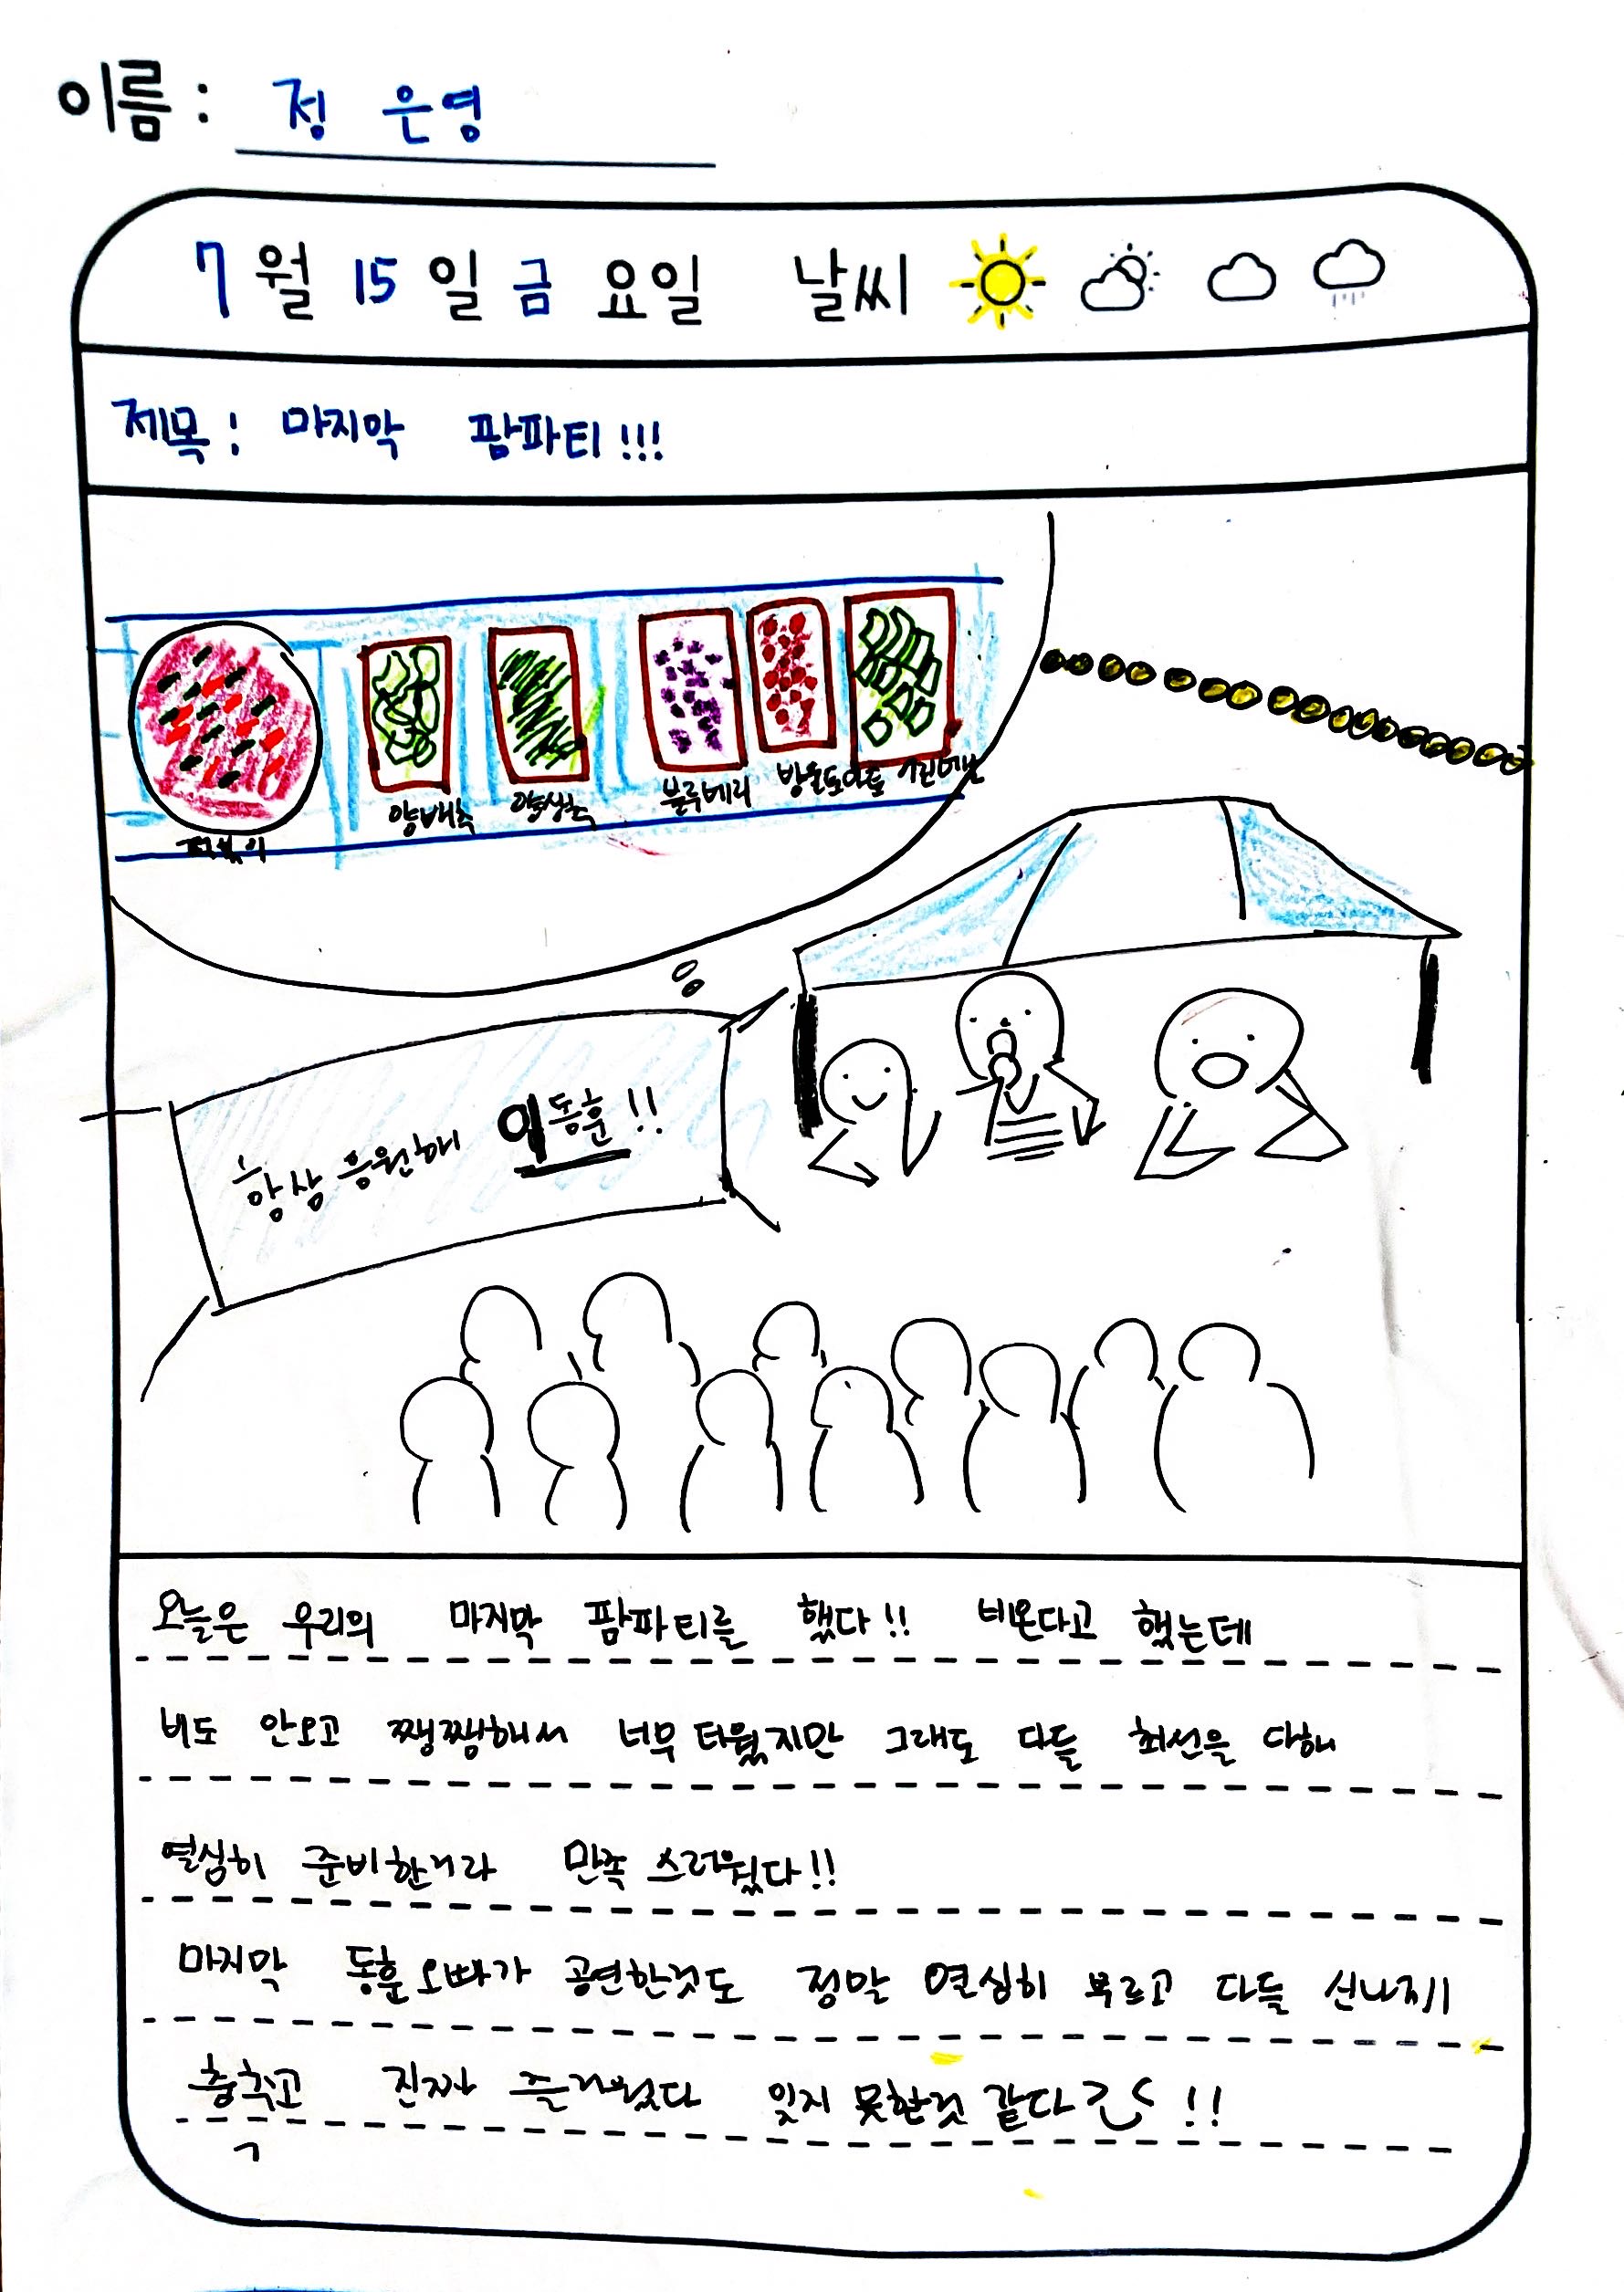 이름 : 정 은영
7월 15일 금요일 날씨
제목 : 마지막 팜파티!!!
양배추 양상추 블루베리 방울토마토 그린빈
항상 응원해 이동훈!!
오늘은 우리의 마지막 팜파티를 했다!! 비온다고 했는데
비도 안오고 쨍쨍해서 너무 더웠지만 그래도 다들 최선을 다해
열심히 준비한거라 만족 스러웠다!!
마지막 동훈오빠가 공연한것도 정말 열심히 부르고 다들 신나게
춤추고 진짜 즐거웠다 잊지 못할것 같다 !!